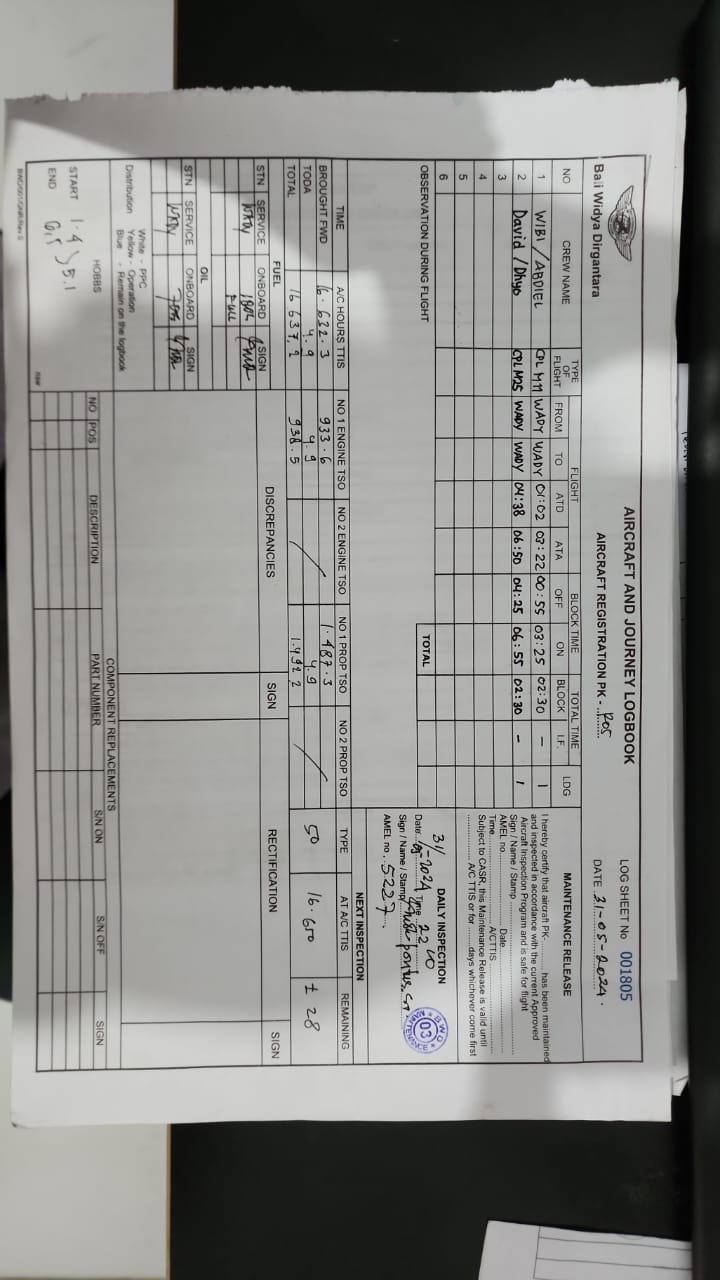 AIRCRAFT AND JOURNEY LOGBOOK
LOG SHEET No 001805
Baii Widya Dirgantara
AIRCRAFT REGISTRATION PK - ROS
DATE 31-05-2024.
NO CREW NAME TYPE OF FLIGHT FLIGHT BLOCK TIME TOTAL TIME LDG
FROM TO ATD ATA OFF ON BLOCK I.F.
1 WIBI / ABDIEL CPL M11 WADY WADY 01:02 03:22 00:55 03:25 02:30 - 1
2 David / Dhyo CPL M25 WADY WADY 04:38 06:50 04:25 06:55 02:30 - 1
3
4
5
6
TOTAL
OBSERVATION DURING FLIGHT
MAINTENANCE RELEASE
I hereby certify that aircraft PK........ has been maintained
and inspected in accordance with the current Approved
Aircraft Inspection Program and is safe for flight
Sign / Name / Stamp
AMEL no. Date
Time A/CTTIS
Subject to CASR, this Maintenance Release is valid until
A/C TTIS or for ........ days whichever come first
DAILY INSPECTION
Date 31/05-2024 Time 22 00
Sign / Name / Stamp
AMEL no. 5227
BWD
03
MAINTENANCE
TIME A/C HOURS TTIS NO 1 ENGINE TSO NO 2 ENGINE TSO NO 1 PROP TSO NO 2 PROP TSO
BROUGHT FWD 16.632.3 933.6 1.487.3
TODA 4.9 4.9 4.9
TOTAL 16 637.2 938.5 1.492.2
NEXT INSPECTION
TYPE AT A/C TTIS REMAINING
50 16.650 ± 28
FUEL
STN SERVICE ONBOARD SIGN
WADY 180L
FULL
OIL
STN SERVICE ONBOARD SIGN
WADY
DISCREPANCIES SIGN RECTIFICATION SIGN
Distribution White - PPC
Yellow - Operation
Blue - Remain on the logbook
HOBBS
START 1.4 5.1
END 6.5
COMPONENT REPLACEMENTS
NO POS DESCRIPTION PART NUMBER S/N ON S/N OFF SIGN